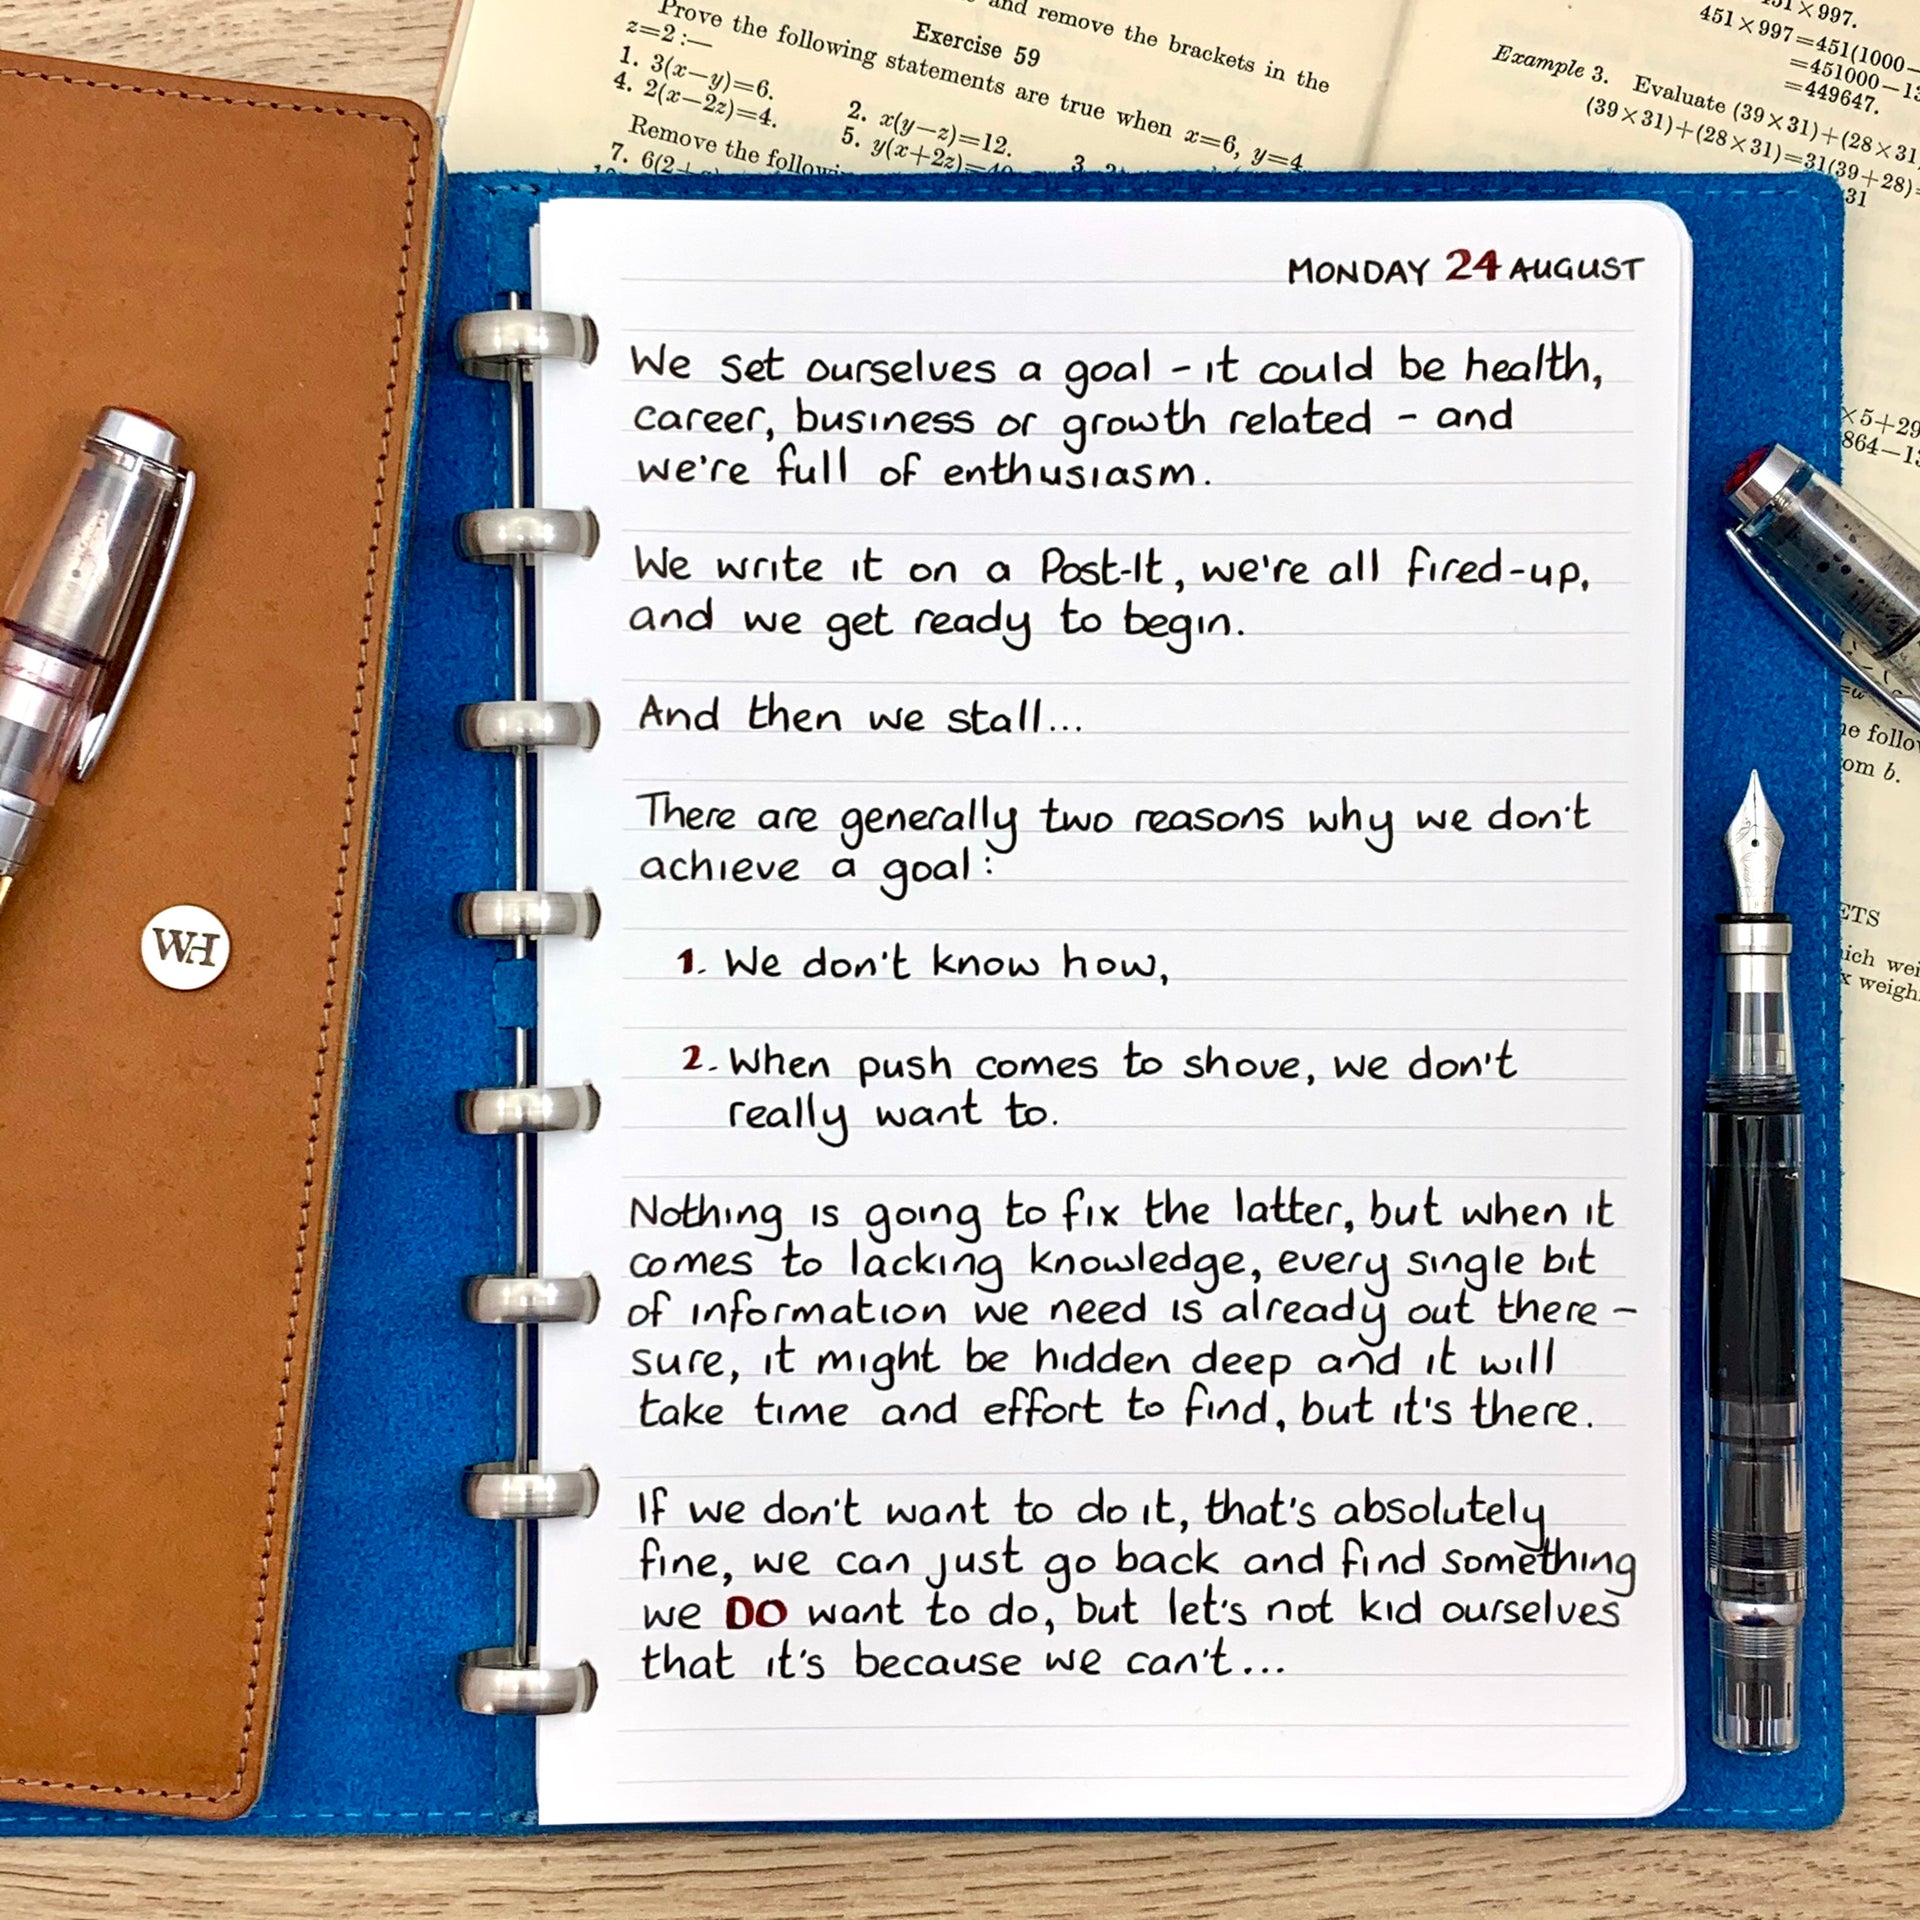 and remove the brackets in the
Exercise 59
Prove the following statements are true when x=6, y=4
z=2:—
1. 3(x—y)=6.
2. x(y—z)=12.
4. 2(x—2z)=4.
5. y(x+2z)=40
Remove the
7. 6(2+
451×997.
451×997=451(1000—
=451000—13
=449647.
Example 3. Evaluate (39×31)+(28×31
(39×31)+(28×31)=31(39+28)=
31
×5+29
864—13
he follow
om b.
ETS
ich wei
x weigh
MONDAY 24 AUGUST
We set ourselves a goal - it could be health,
career, business or growth related - and
we're full of enthusiasm.
We write it on a Post-It, we're all fired-up,
and we get ready to begin.
And then we stall...
There are generally two reasons why we don't
achieve a goal:
1. We don't know how,
2. When push comes to shove, we don't
really want to.
Nothing is going to fix the latter, but when it
comes to lacking knowledge, every single bit
of information we need is already out there -
sure, it might be hidden deep and it will
take time and effort to find, but it's there.
If we don't want to do it, that's absolutely
fine, we can just go back and find something
we DO want to do, but let's not kid ourselves
that it's because we can't...
WH